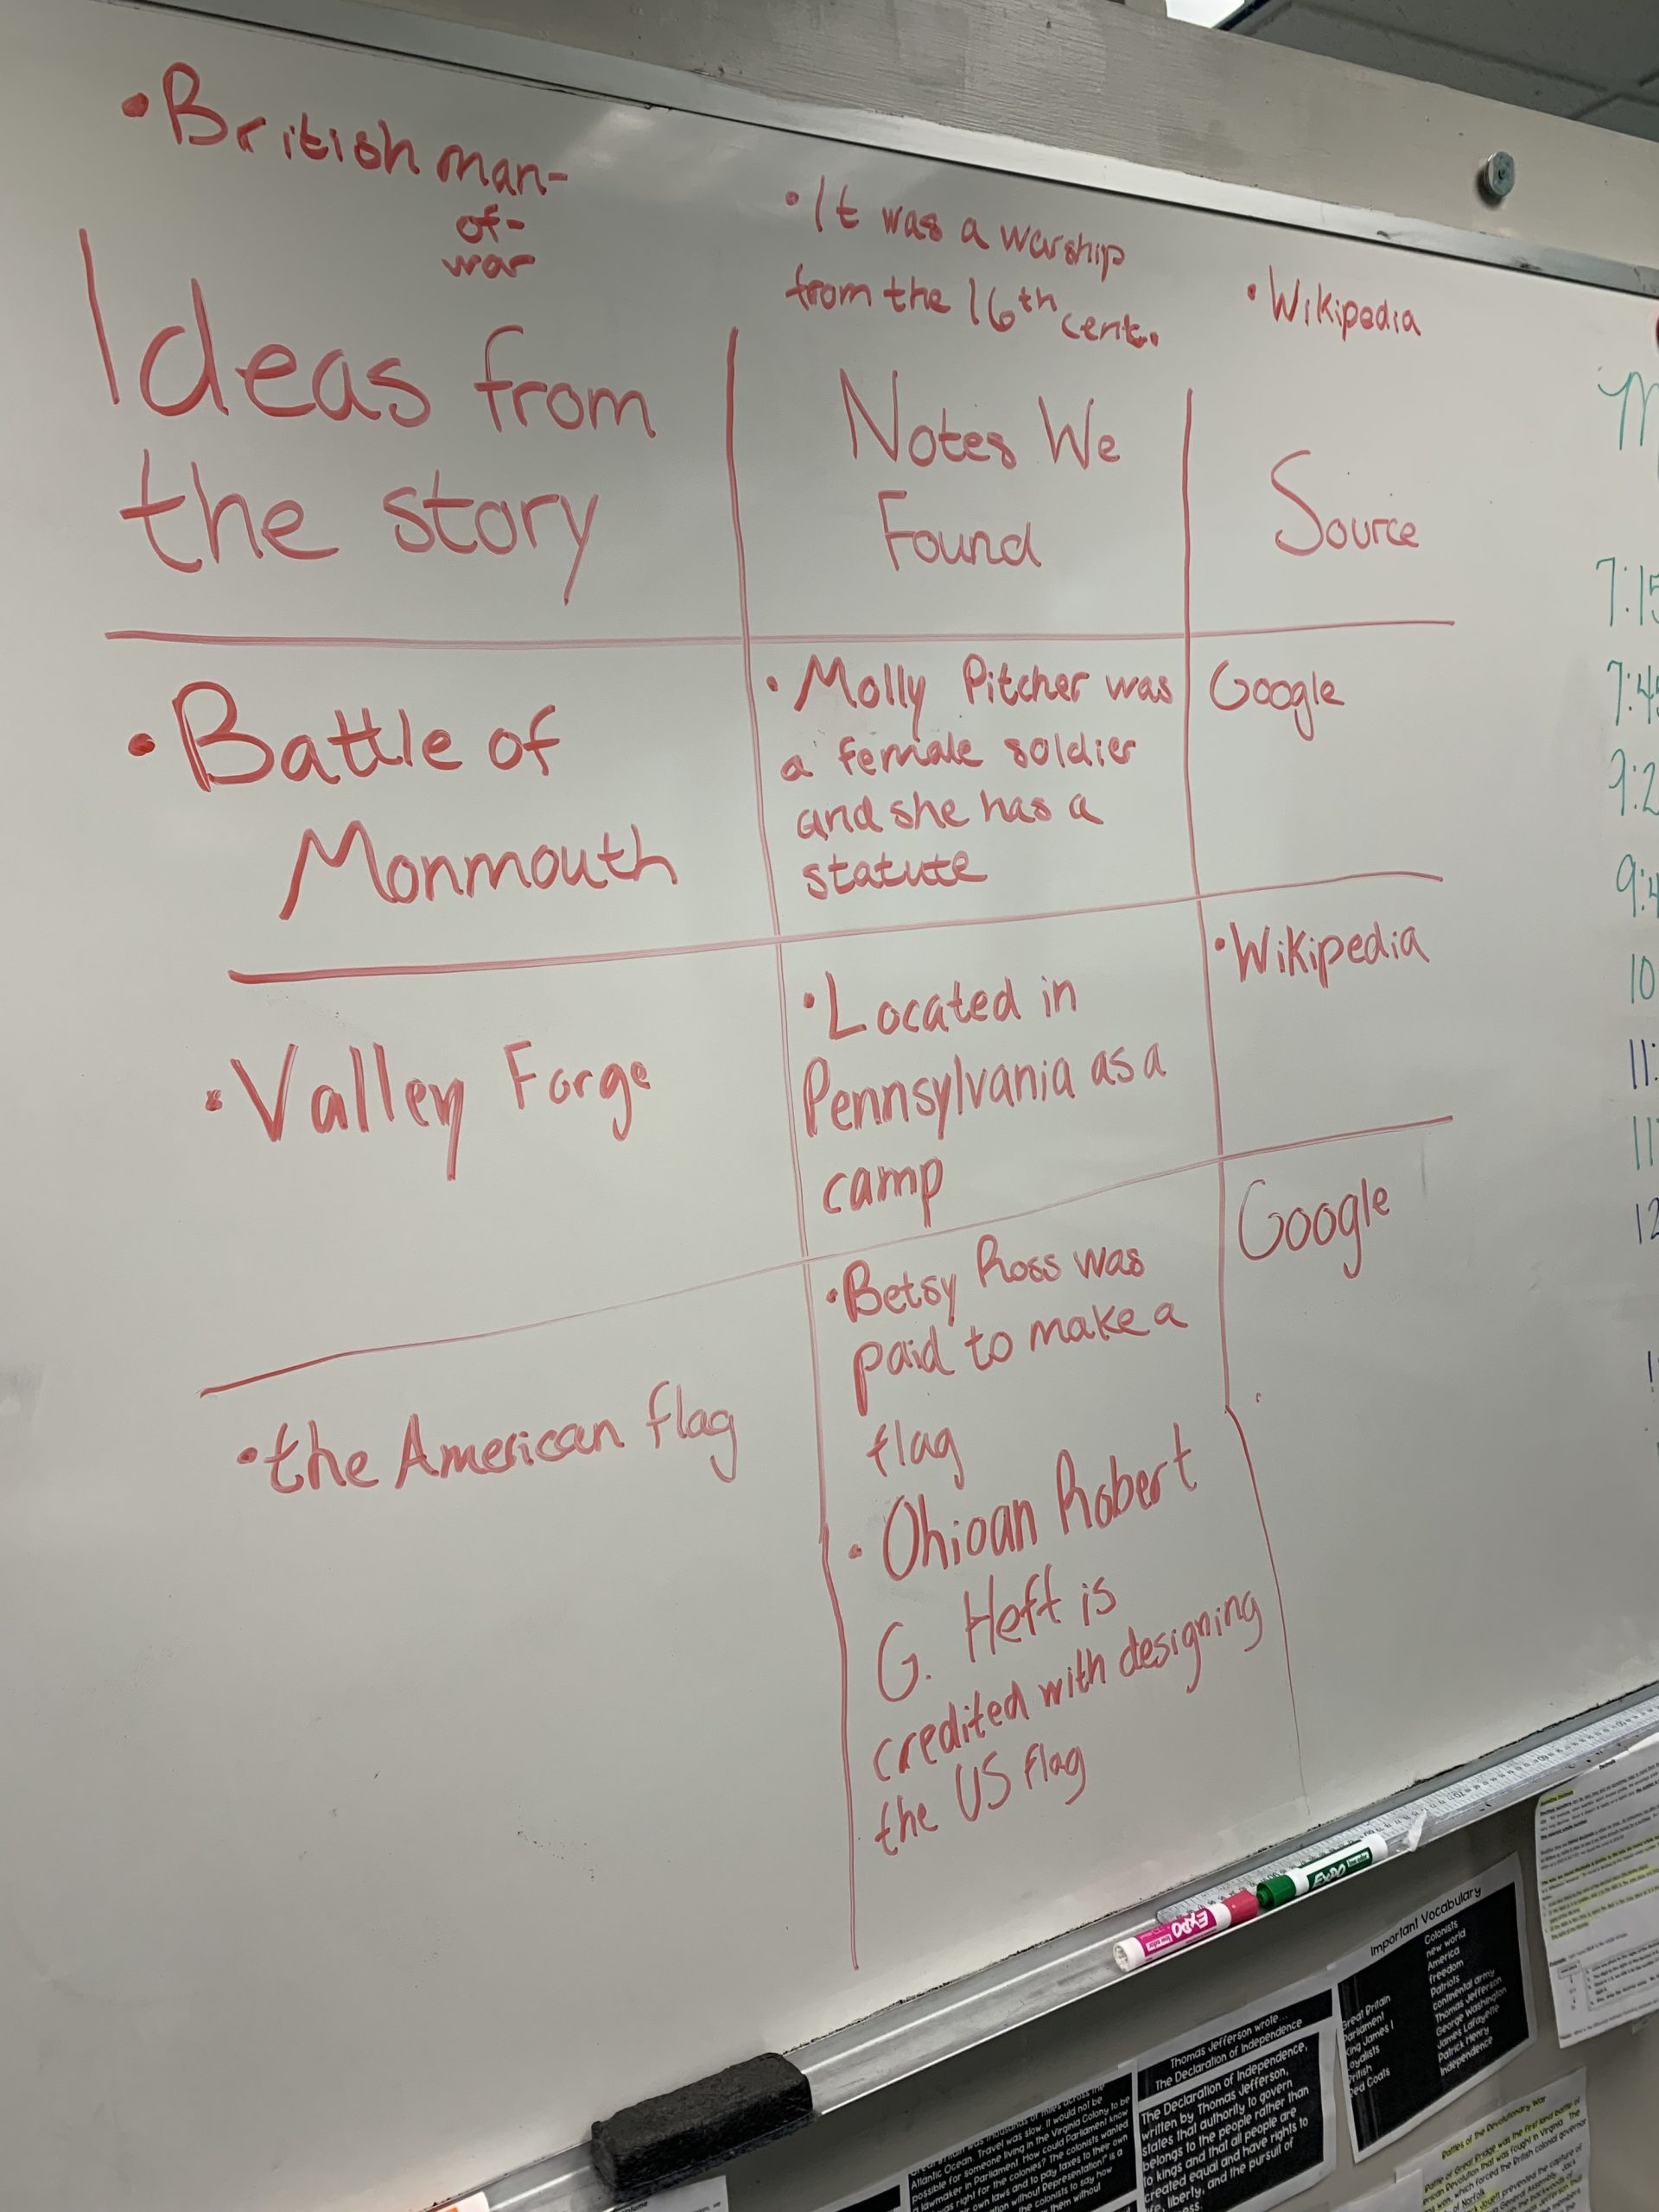 • British man-
of-
war
• It was a warship
from the 16th cent.
• Wikipedia
Ideas from
the story
Notes We
Found
Source
• Battle of
Monmouth
• Molly Pitcher was
a female soldier
and she has a
statute
Google
• Valley Forge
• Located in
Pennsylvania as a
camp
• Wikipedia
• the American flag
• Betsy Ross was
paid to make a
flag
• Ohioan Robert
G. Heft is
credited with designing
the US flag
Google
7:15
9:2
10
11:
12
EXPO
EXPO
Important Vocabulary
Great Britain
Parliament
King James I
Loyalists
British
Red Coats
Colonists
new world
America
freedom
Patriots
continental army
Thomas Jefferson
George Washington
James Lafayette
Patrick Henry
Independence
Thomas Jefferson wrote...
The Declaration of Independence
The Declaration of Independence,
written by Thomas Jefferson,
states that authority to govern
belongs to the people rather than
to kings and that all people are
created equal and have rights to
life, liberty, and the pursuit of
Atlantic Ocean. Travel was slow. It would not be
possible for someone living in the Virginia Colony to be
a lawmaker in Parliament. How could Parliament know
was right for the colonies? The colonists wanted
own laws and to pay taxes to their own
without Representation? is a
the colonists to say how
them without
Battles of the Revolutionary War
Battle of Great Bridge was the first land battle of
Revolution that was fought in Virginia. The
which forced the British colonial governor
of Norfolk
prevented the capture of
General Assembly. Jack